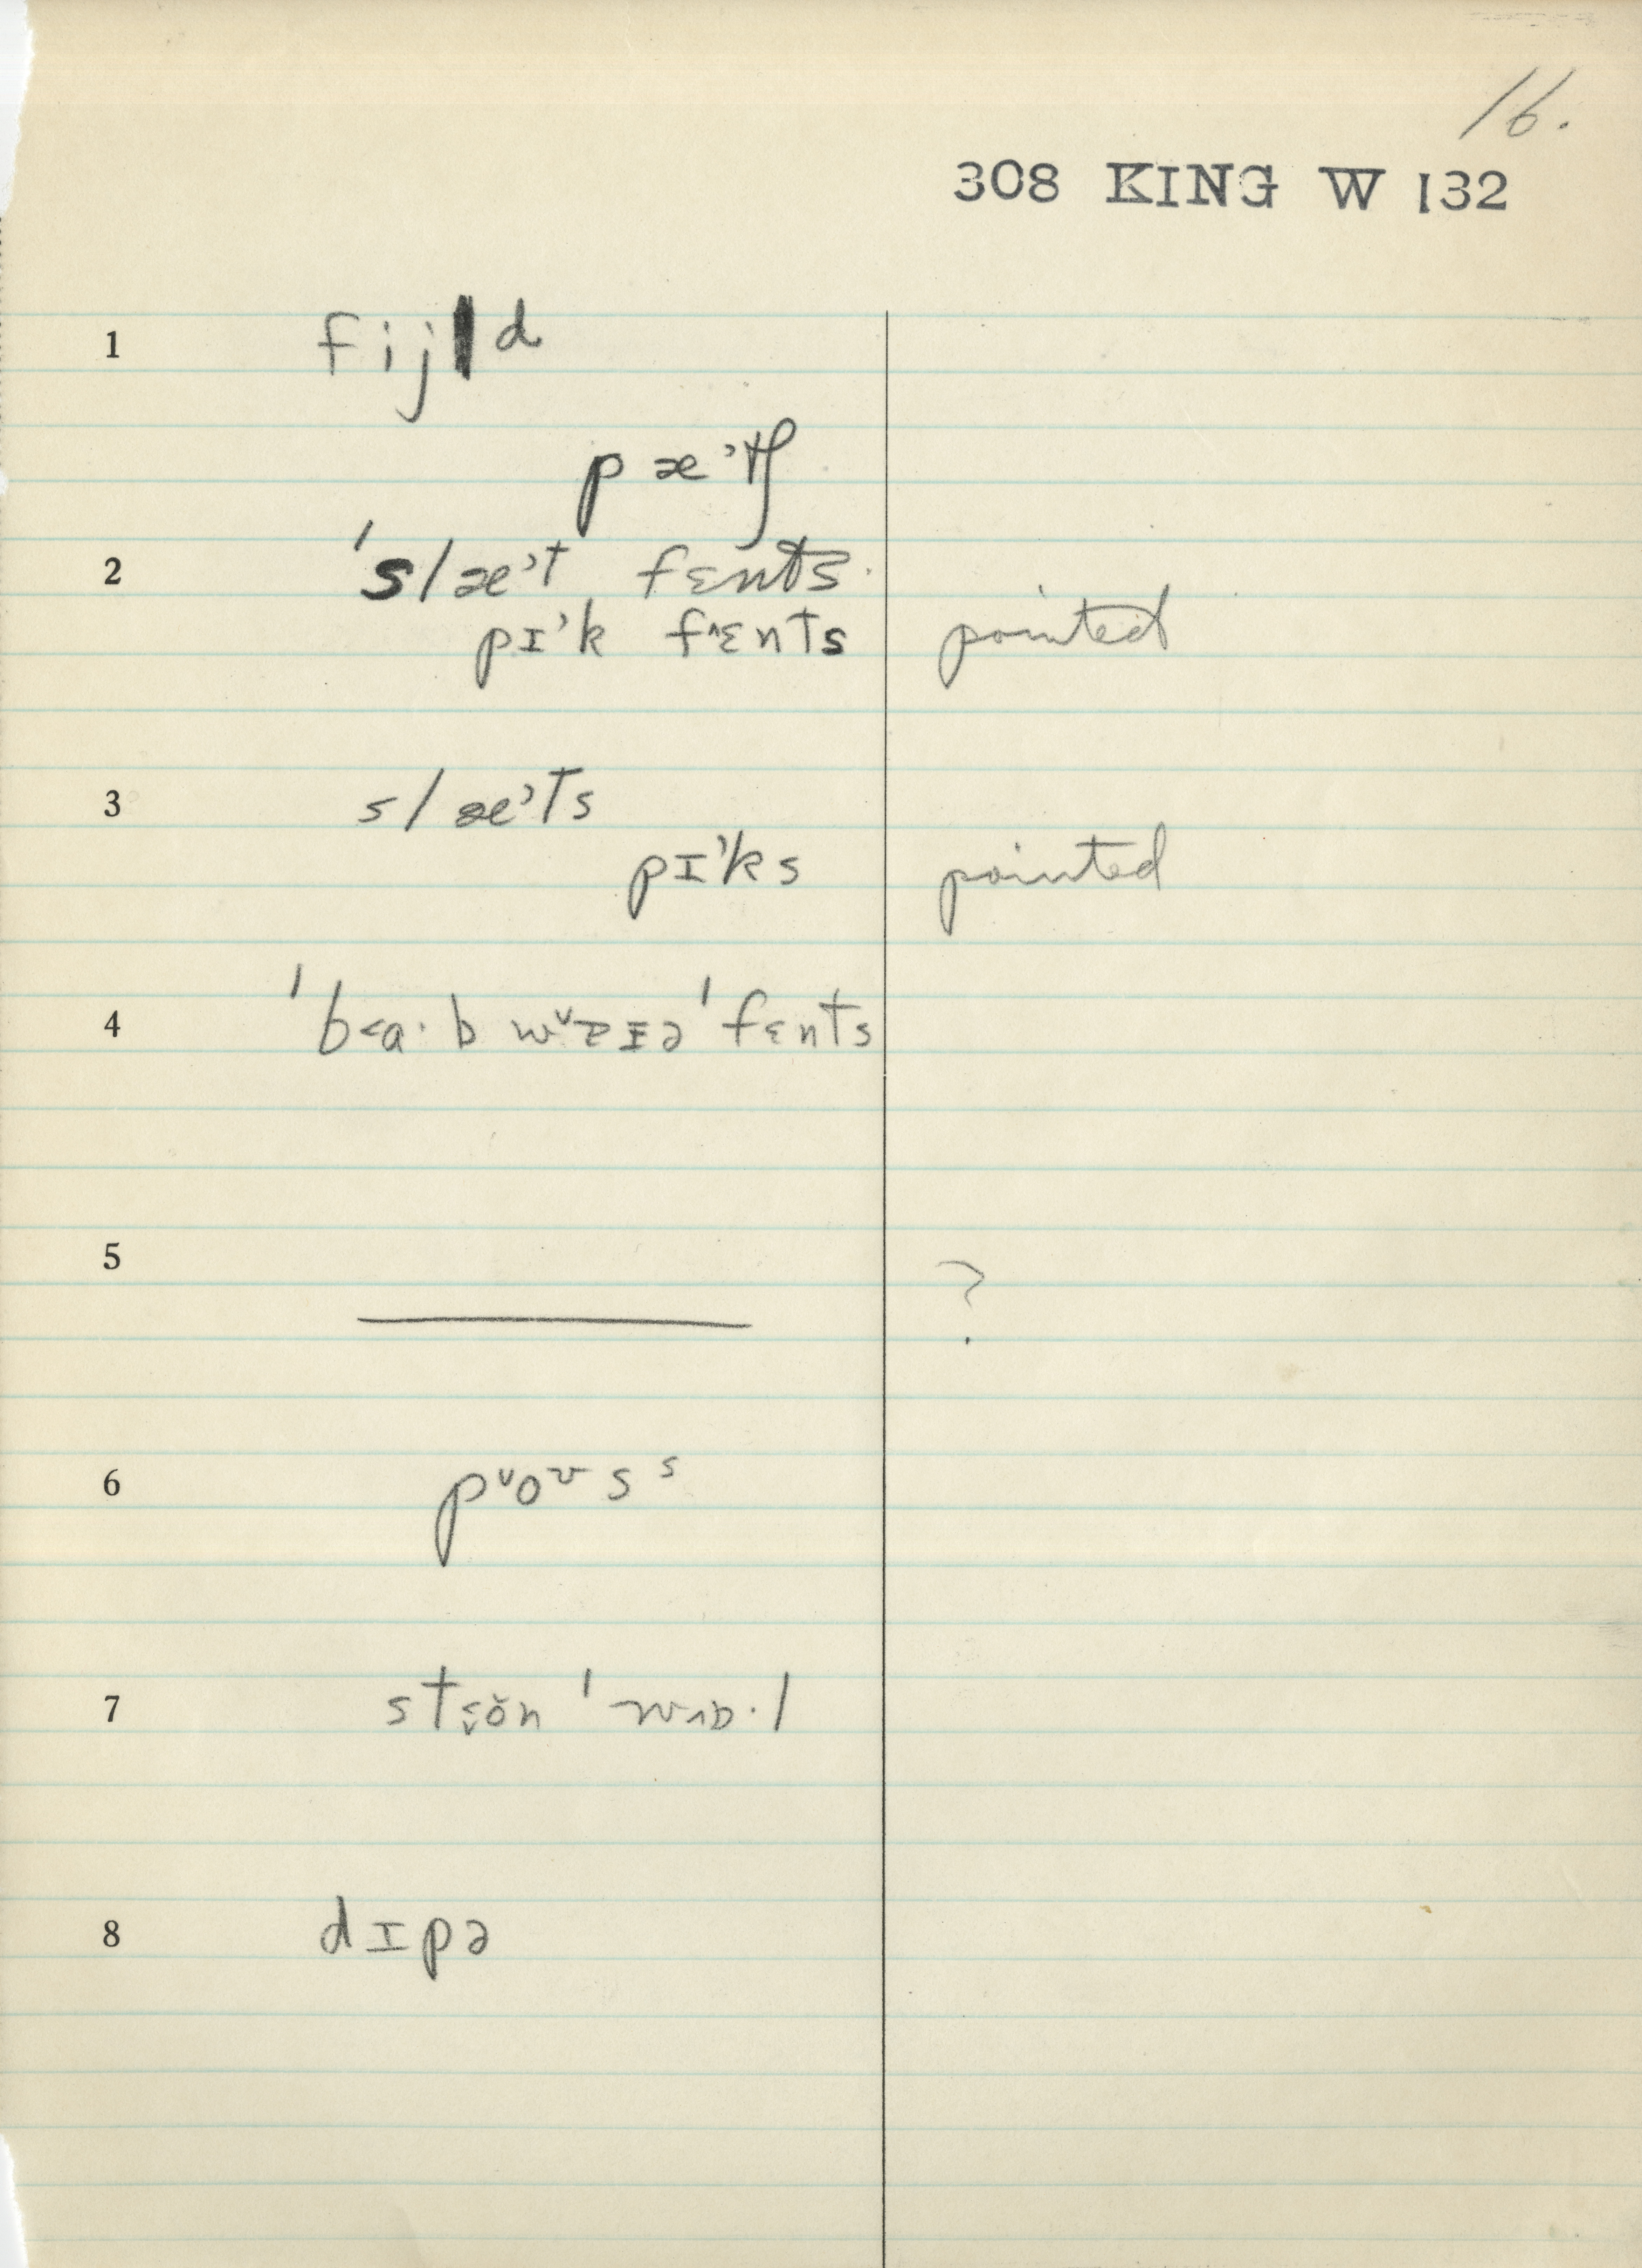 16.
308 KING W 132
1 fijld
pæ’tʃ
2 'slæ’t fɛnts
pɪ’k f^ɛnts pointed
3 slæ’ts
pɪ’ks pointed
4 'b<a·b wɪə 'fɛnts
5 ?
6 p˅oʊs s
7 'wɒ·l
8 dɪpə